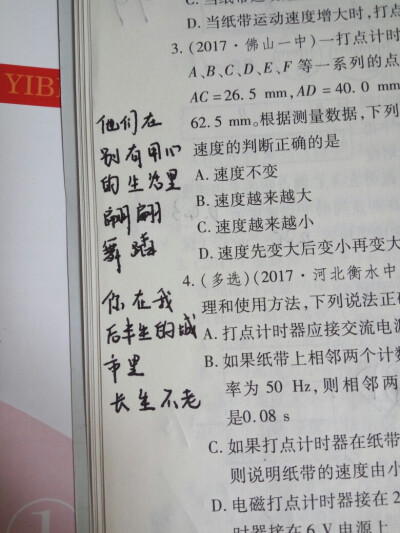 YIB
C. 当纸带运动速度
D. 当纸带运动速度增大时,打点
3. (2017·佛山一中)一打点计时
A、B、C、D、E、F 等一系列的点
AC=26.5 mm,AD=40.0 mm
62.5 mm。根据测量数据,下列
速度的判断正确的是
A. 速度不变
B. 速度越来越大
C. 速度越来越小
D. 速度先变大后变小再变大
4. (多选)(2017·河北衡水中
理和使用方法,下列说法正
A. 打点计时器应接交流电
B. 如果纸带上相邻两个计数
率为 50 Hz,则相邻两
是0.08 s
C. 如果打点计时器在纸带
则说明纸带的速度由小
D. 电磁打点计时器接在 2
时器接在 6 V 电源上
他们在
别有用心
的生活里
翩翩
舞蹈
你在我
后半生的城
市里
长生不老
1